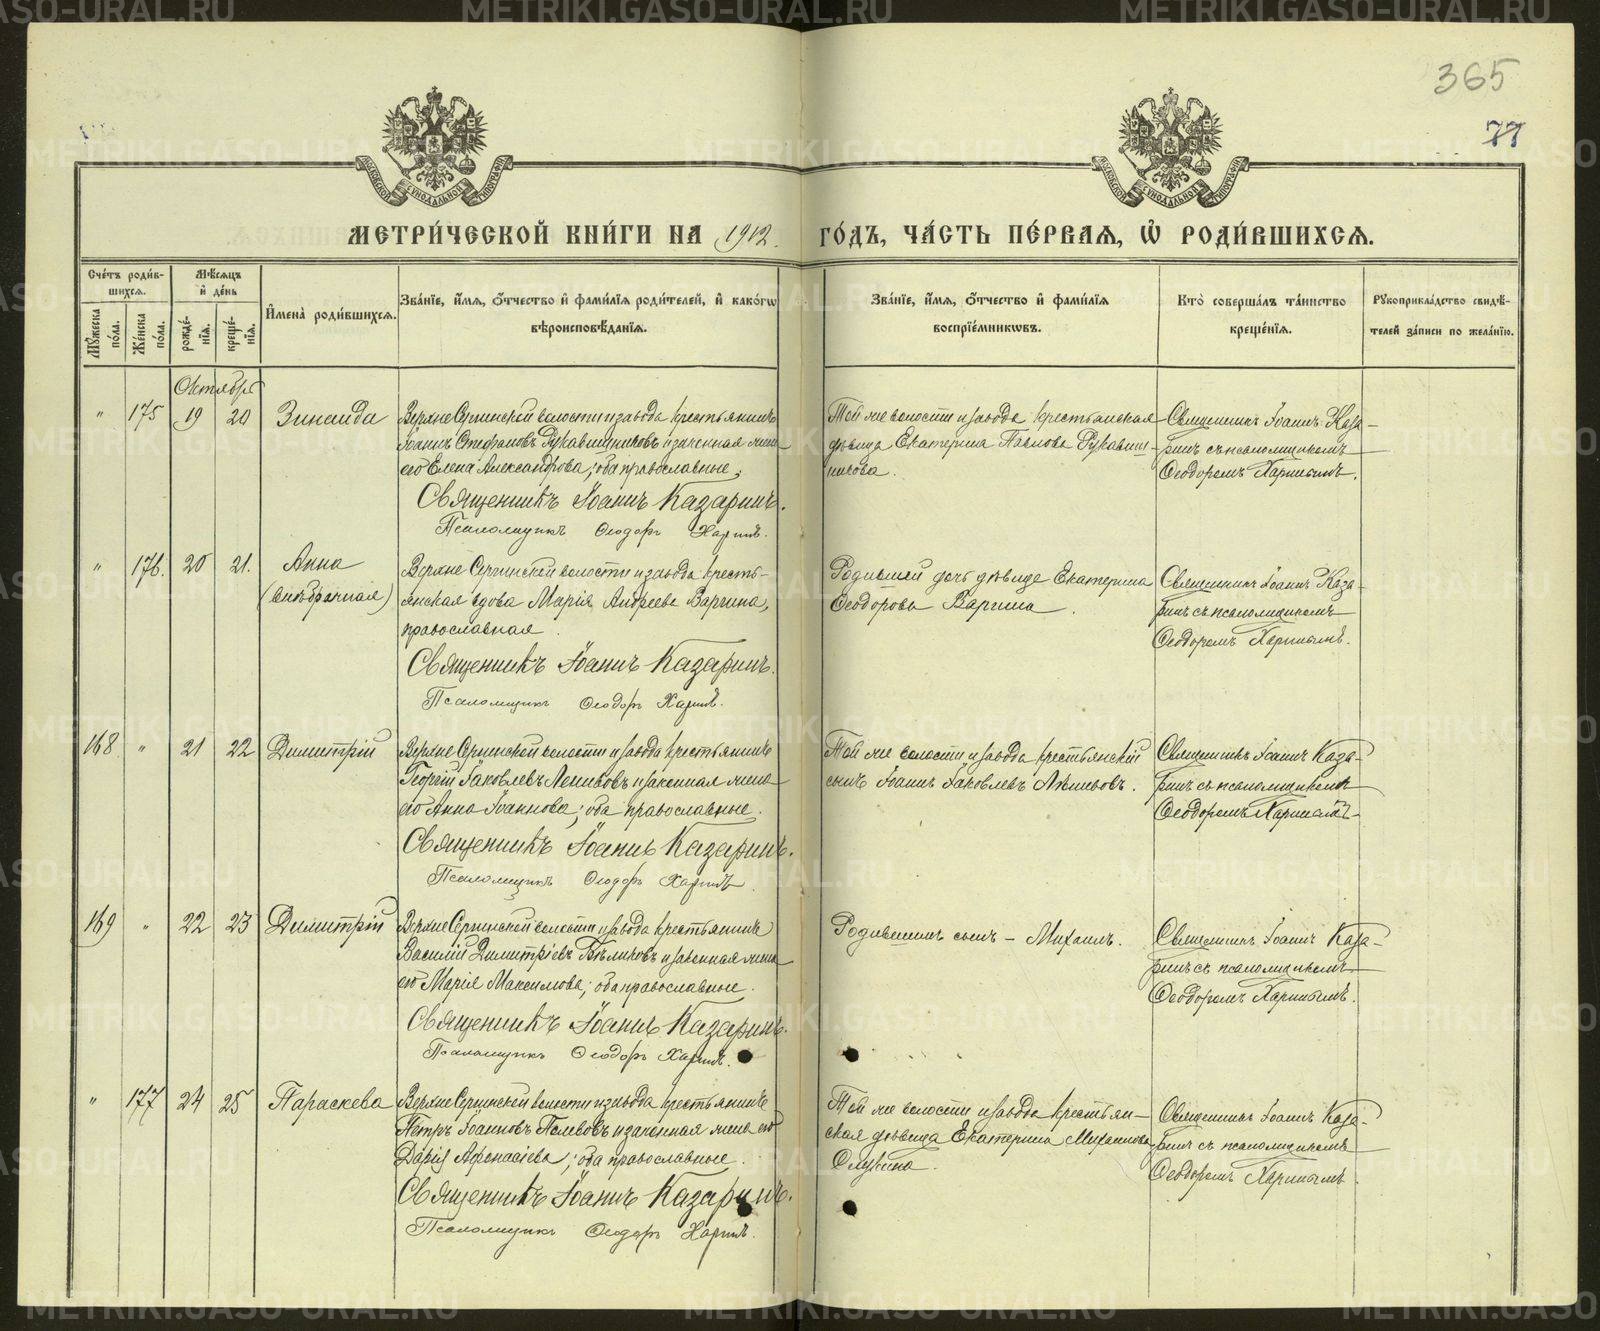 365
77
МЕТРИ́ЧЕСКОЙ КНИ́ГИ НА 1912. ГО́ДЪ, ЧА́СТЬ ПЕ́РВАѦ, Ѡ҆ РОДИ́ВШИХСѦ.
Сче́тъ роди́вшихсѧ.
Мꙋ́жеска по́ла.
Же́нска по́ла.
Мѣ́сѧцъ и҆ де́нь
рожде́нїѧ.
креще́нїѧ.
И҆мена̀ роди́вшихсѧ.
Зва́нїе, и҆́мѧ, ѻ҆́тчество и҆ фами́лїѧ роди́телей, и҆ како́гѡ
вѣроисповѣ́данїѧ.
Зва́нїе, и҆́мѧ, ѻ҆́тчество и҆ фами́лїѧ
воспрїе́мникѡвъ.
Кто̀ соверша́лъ та́инство
креще́нїѧ.
Рꙋкоприкла́дство свидѣ́-
телей за́писи по жела́нїю.
Октябрь
" 175 19 20 Зинаида
Верхне Сергинской волости и завода крестьянинъ
Іоаннъ Стефановъ Рукавишниковъ и законная жена
его Елена Александрова; оба православные.
Священникъ Іоаннъ Казаринъ.
Псаломщикъ Ѳеодоръ
Той же волости и завода крестьянская
дѣвица Екатерина Павлова Рукавиш-
никова.
Священникъ Іоаннъ Каза-
ринъ съ псаломщикомъ
Ѳеодоромъ
" 176. 20 21. Анна
(внѣбрачная)
Верхне Сергинской волости и завода кресть-
янская вдова Марія Андреева Варгина,
православная.
Священникъ Іоаннъ Казаринъ.
Псаломщикъ Ѳеодоръ
Родившей дочь дѣвица Екатерина
Ѳеодорова Варгина.
Священникъ Іоаннъ Каза-
ринъ съ псаломщикомъ
Ѳеодоромъ
168 " 21 22 Димитрій
Верхне Сергинской волости и завода крестьянинъ
Георгій Іаковлевъ и законная жена
его Анна Іоаннова; оба православные.
Священникъ Іоаннъ Казаринъ.
Псаломщикъ Ѳеодоръ
Той же волости и завода крестьянскій
сынъ Іоаннъ Іаковлевъ
Священникъ Іоаннъ Каза-
ринъ съ псаломщикомъ
Ѳеодоромъ
169 " 22 23 Димитрій
Верхне Сергинской волости и завода крестьянинъ
Василій Димитріевъ и законная жена
его Марія Максимова; оба православные.
Священникъ Іоаннъ Казаринъ.
Псаломщикъ Ѳеодоръ
Родившихъ сынъ – Михаилъ.
Священникъ Іоаннъ Каза-
ринъ съ псаломщикомъ
Ѳеодоромъ
" 177 24 25 Параскева
Верхне Сергинской волости и завода крестьянинъ
Петръ Іоанновъ и законная жена его
Дарія Аѳанасіева; оба православные.
Священникъ Іоаннъ Казаринъ.
Псаломщикъ Ѳеодоръ
Той же волости и завода крестьян-
ская дѣвица Екатерина Михаилова
Священникъ Іоаннъ Каза-
ринъ съ псаломщикомъ
Ѳеодоромъ
METRIKI.GASO-URAL.RU